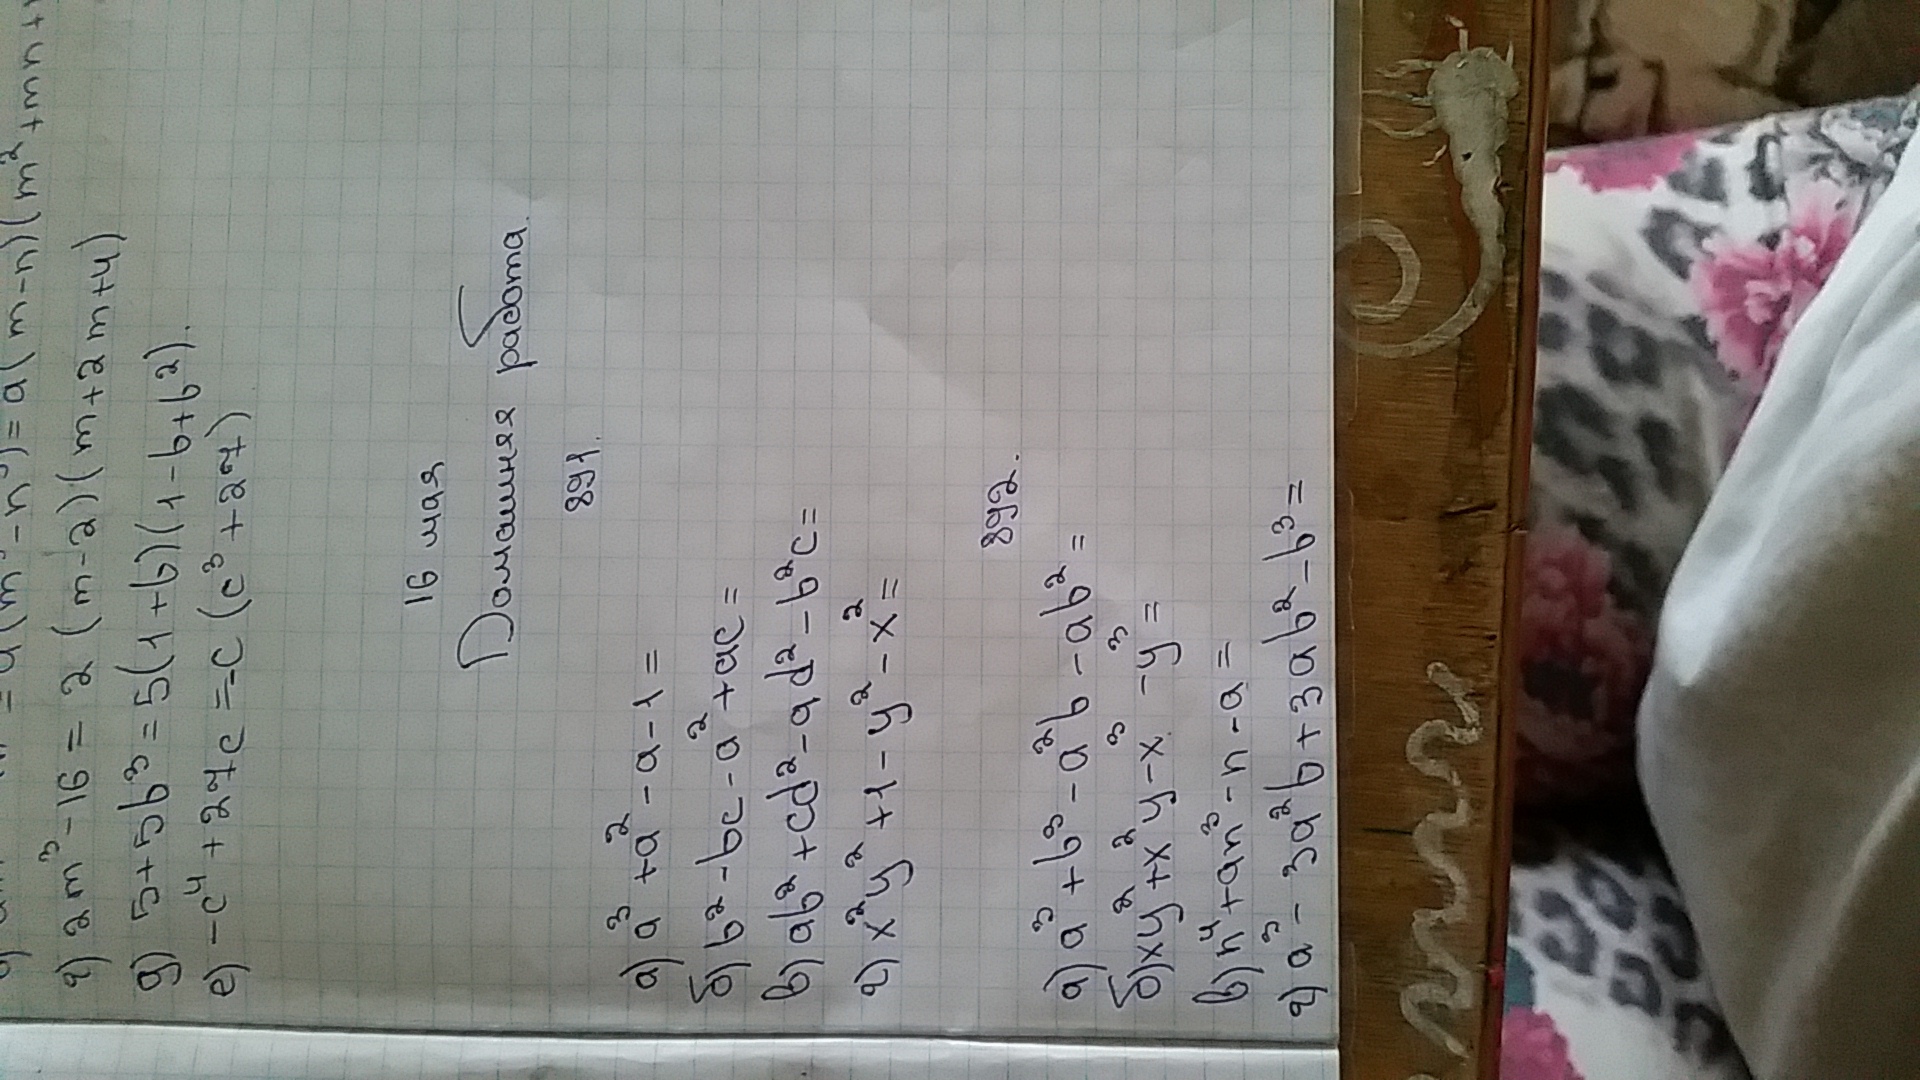 = a(m³-n³) = a(m-n)(m²+mn+
г) 2m³-16 = 2(m-2)(m+2m+4)
д) 5+5b³ = 5(1+b)(1-b+b2).
е) -c⁴+27c = -c(c³+27)
16 мая
Домашняя работа.
891.
а) a³+a²-a-1=
б) b²-bc-a²+ac=
в) ab²+cd²-ad²-b²c=
г) x²y²+1-y²-x²=
892.
а) a³+b³-a²b-ab²=
б) xy²+x²y-x³-y³=
в) n⁴+an³-n-a=
г) a³-3a²b+3ab²-b³=